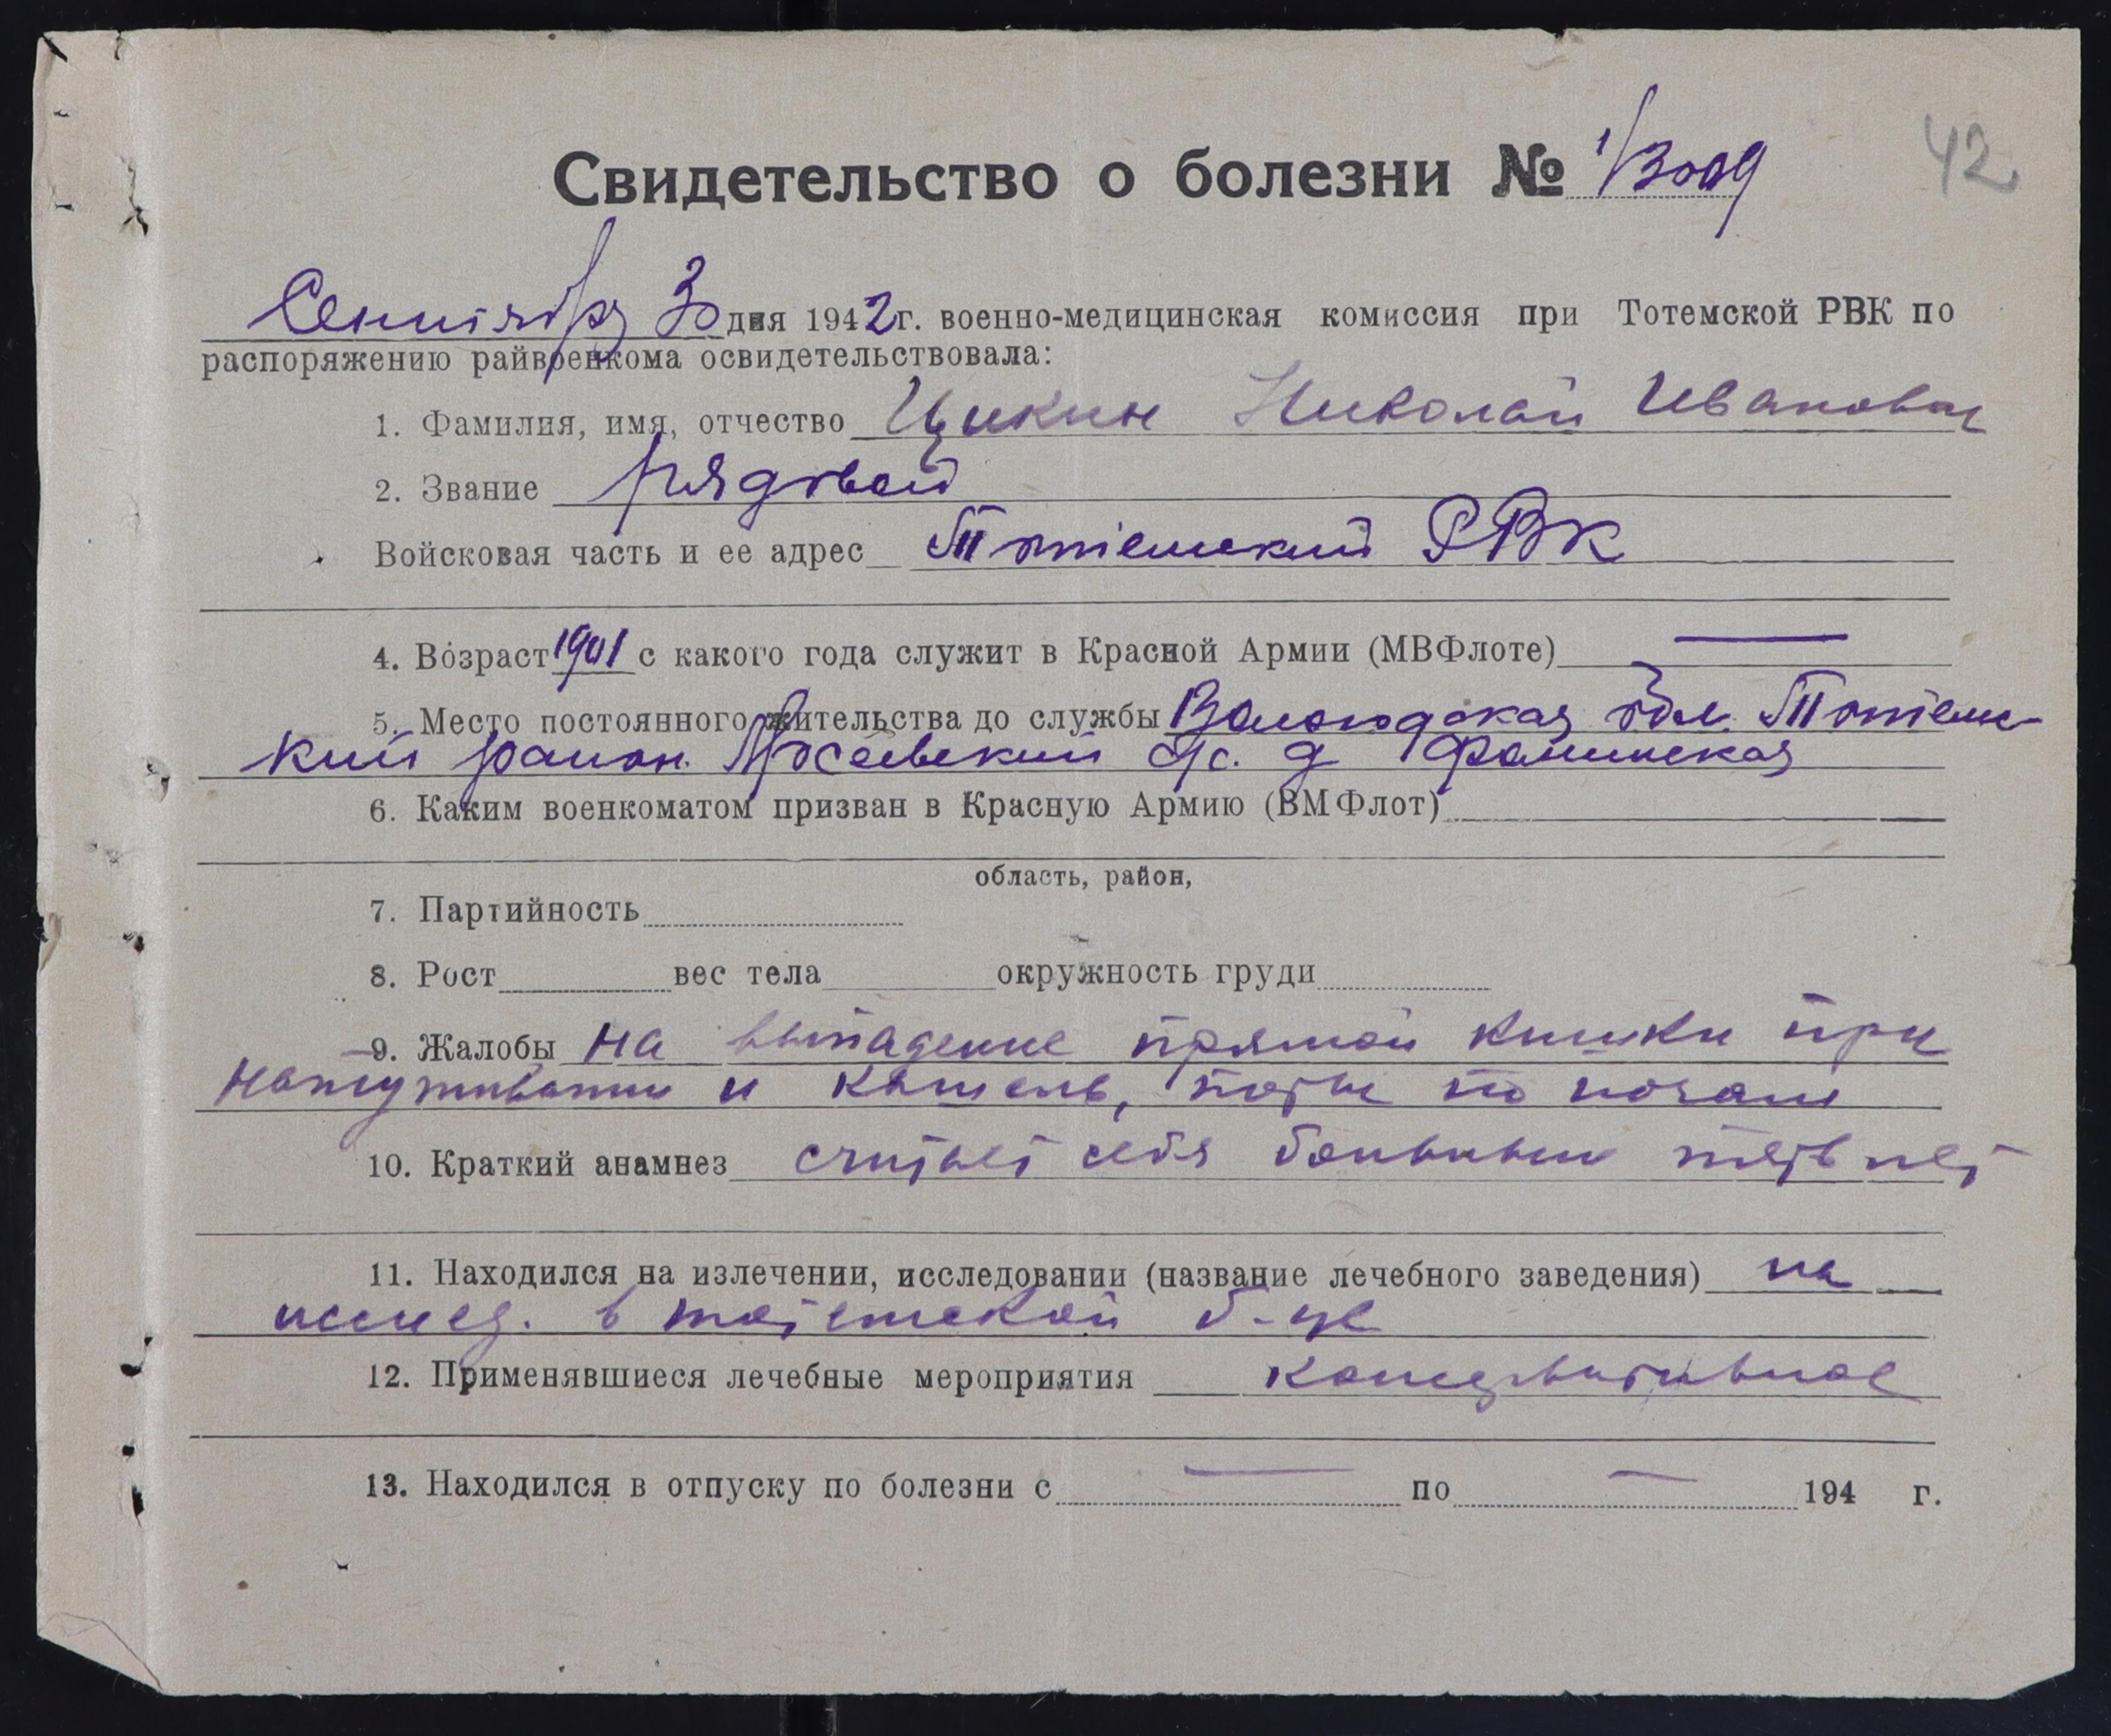 Свидетельство о болезни № 1/3009
42
Сентября 30 дня 1942 г. военно-медицинская комиссия при Тотемской РВК по
распоряжению райвоенкома освидетельствовала:
1. Фамилия, имя, отчество Цикин Николай Иванович
2. Звание рядовой
Войсковая часть и ее адрес Тотемский РВК
4. Возраст 1901 с какого года служит в Красной Армии (МВФлоте) —
5. Место постоянного жительства до службы Вологодская обл. Тотемс-
кий район. с/с. д Фоминская
6. Каким военкоматом призван в Красную Армию (ВМФлот)
область, район,
7. Партийность
8. Рост вес тела окружность груди
9. Жалобы на выпадение прямой кишки при
натуживании и кашель, поты по ночам
10. Краткий анамнез считает себя больным пять лет
11. Находился на излечении, исследовании (название лечебного заведения) на
исслед. в тотемской б-це
12. Применявшиеся лечебные мероприятия консервативное
13. Находился в отпуску по болезни с — по — 194 г.